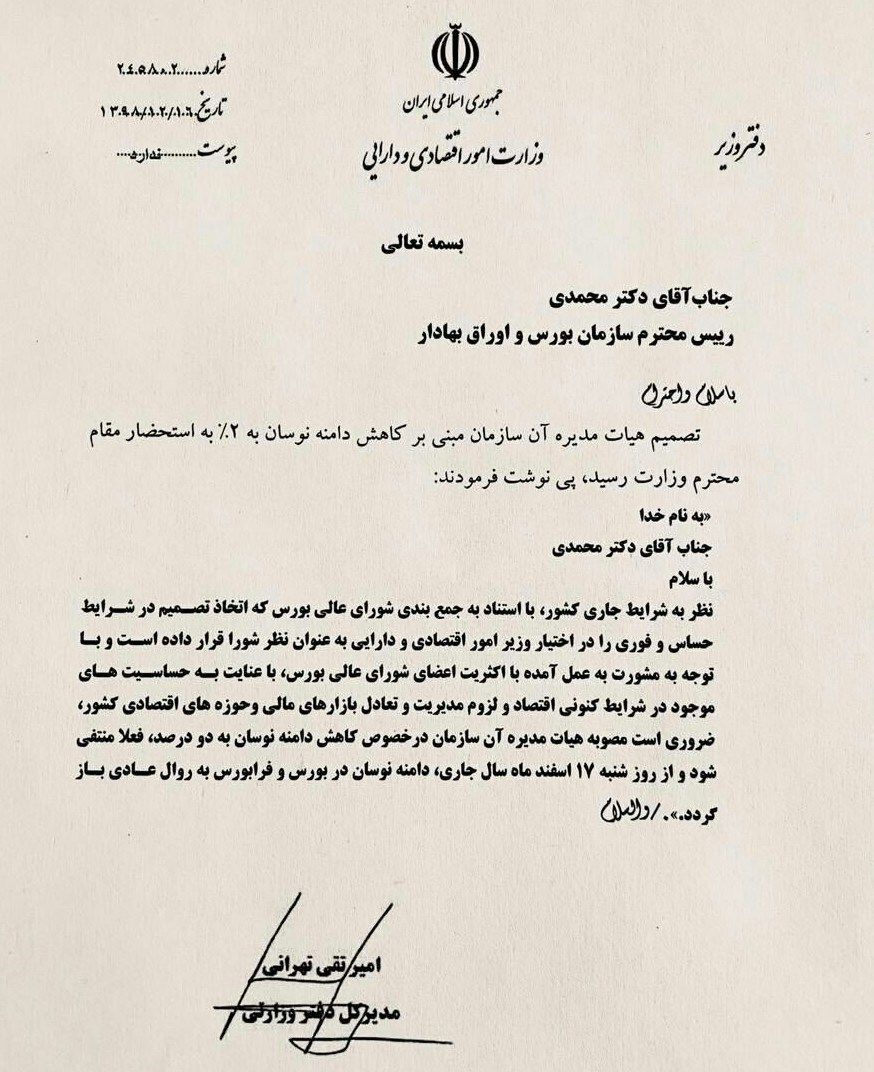 جمهوری اسلامی ایران
وزارت امور اقتصادی و دارایی
دفتر وزیر
شماره......۲۴۵۸۰۰۲
تاریخ ۱۳۹۸/۱۲/۰۱۶
پیوست..........ندارد....
بسمه تعالی
جناب‌آقای دکتر محمدی
رییس محترم سازمان بورس و اوراق بهادار
باسلام واحترام
تصمیم هیات مدیره آن سازمان مبنی بر کاهش دامنه نوسان به ۲٪ به استحضار مقام
محترم وزارت رسید، پی نوشت فرمودند:
«به نام خدا
جناب آقای دکتر محمدی
با سلام
نظر به شرایط جاری کشور، با استناد به جمع بندی شورای عالی بورس که اتخاذ تصمیم در شرایط
حساس و فوری را در اختیار وزیر امور اقتصادی و دارایی به عنوان نظر شورا قرار داده است و با
توجه به مشورت به عمل آمده با اکثریت اعضای شورای عالی بورس، با عنایت به حساسیت های
موجود در شرایط کنونی اقتصاد و لزوم مدیریت و تعادل بازارهای مالی وحوزه های اقتصادی کشور،
ضروری است مصوبه هیات مدیره آن سازمان درخصوص کاهش دامنه نوسان به دو درصد، فعلا منتفی
شود و از روز شنبه ۱۷ اسفند ماه سال جاری، دامنه نوسان در بورس و فرابورس به روال عادی باز
گردد.»./والسلام
امیر تقی تهرانی
مدیرکل دفتر وزارتی